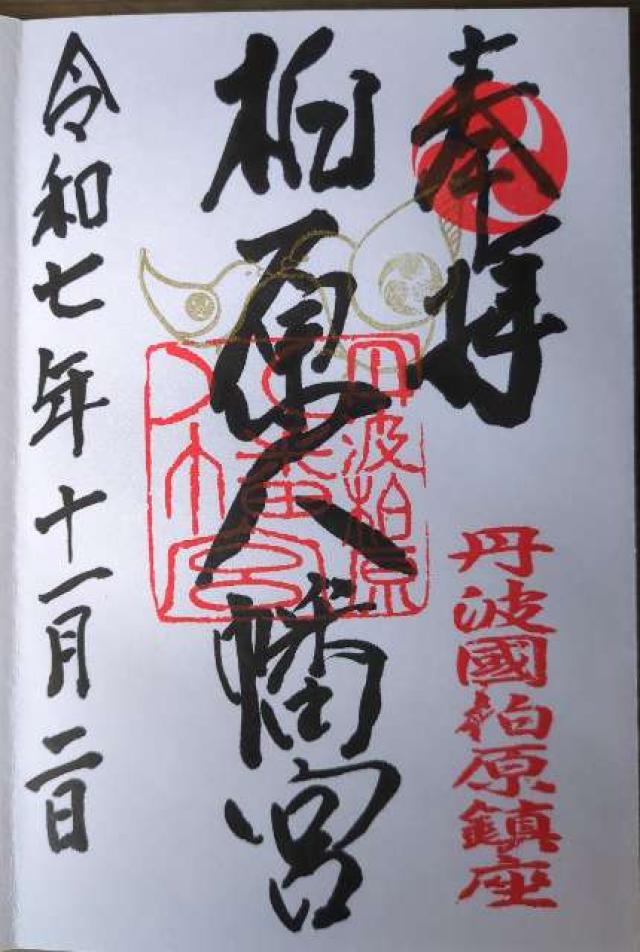 奉拝
丹波國柏原鎮座
柏原八幡宮
丹波柏原
八幡宮
令和七年十一月二日